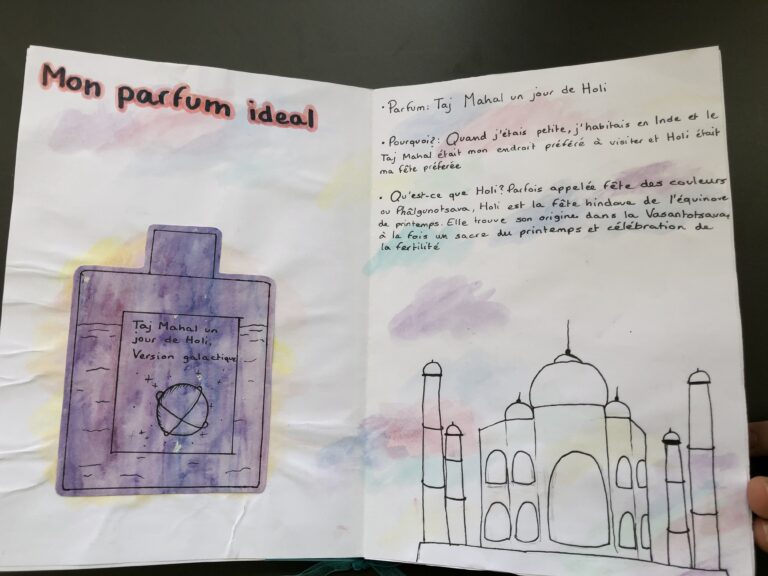 Mon parfum ideal
Taj Mahal un
jour de Holi,
Version galactique
• Parfum: Taj Mahal un jour de Holi
• Pourquoi?: Quand j'étais petite, j'habitais en Inde et le
Taj Mahal était mon endroit préféré à visiter et Holi était
ma fête préférée
• Qu'est-ce que Holi? Parfois appelée fête des couleurs
ou Phâlgunotsava, Holi est la fête hindoue de l'équinoxe
de printemps. Elle trouve son origine dans la Vasantotsava,
à la fois un sacre du printemps et célébration de
la fertilité